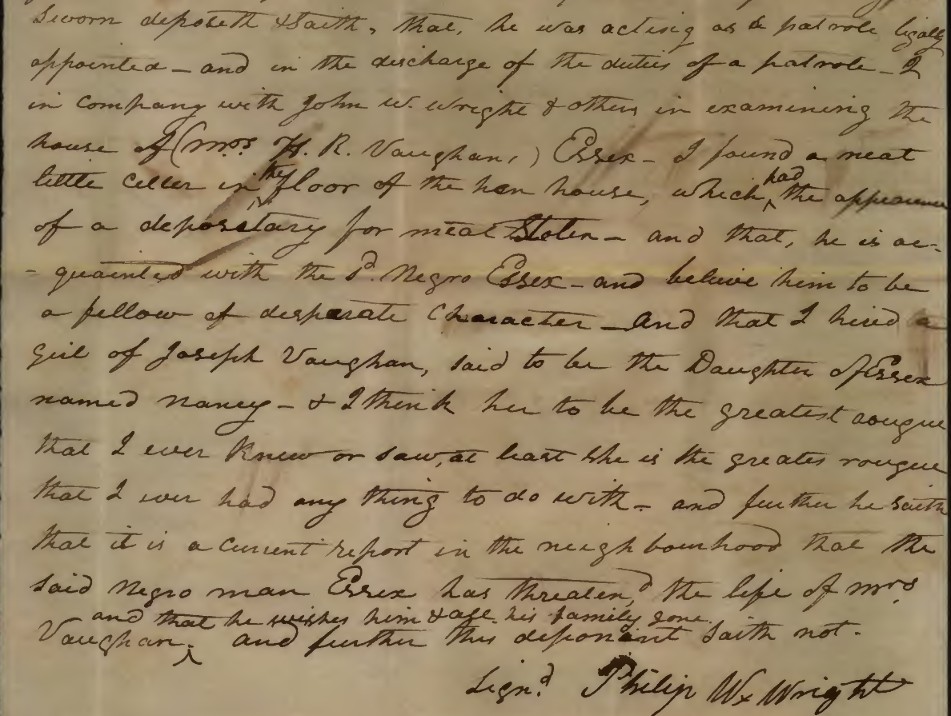 sworn deposeth & saith, that, he was acting as a patrole ligally
appointed - and in the discharge of the duties of a patrole - I
in company with John W. Wright & others in examining the
house of (Mrs. H. R. Vaughan,) Essex - I found a neat
little celler in the floor of the hen house, which had the appearence
of a depositary for meat Stolen - and that, he is ac-
-quainted with the sd. Negro Essex - and believe him to be
a fellow of desparate Character - and that I hired a
girl of Joseph Vaughan, said to be the Daughter of Essex
named Nancy - & I think her to be the greatest rougue
that I ever Knew or saw, at least she is the greates rougue
that I ever had any thing to do with - and further he saith
that it is a current report in the neighbourhood that the
said Negro man Essex has threaten,d the life of Mrs
and that he wishes him & all his family gone.
Vaughan, and further this deponant saith not.
Sign.d Philip Wx Wright